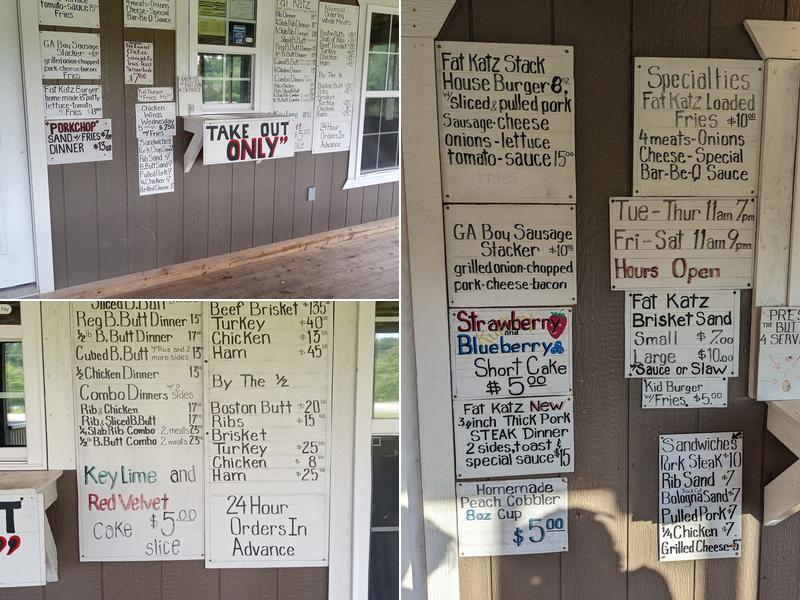 tomato-sauce 15
GA Boy Sausage
Stacker
grilled onion-chopped
pork-cheese-bacon
Fries
Fat Katz Burger
home made ½ patty
lettuce-tomato
Fries
"PORKCHOP"
SAND. w/ FRIES
DINNER $13
4 meats-Onions
Cheese-Special
Bar-Be-Q Sauce
$7.00
Kid Burger
w/Fries
Chicken
Wings
Wednesday
$7.50
w/Fries
Sandwiches
Rib Sand
B.Butt Sand
Pulled Pork
¼ Chicken
Grilled Cheese
TAKE OUT
ONLY"
Rib Dinner
Advanced
Ordering
Whole Meats
Boston Butt
Ribs
Beef Brisket
Turkey
Chicken
Ham
By The ½
Boston Butt
Ribs
Brisket
Turkey
Chicken
Ham
24 Hour
Orders In
Advance
Sliced B.Butt Dinner 13
Reg B.Butt Dinner 13
½ lb B.Butt Dinner 17
Cubed B.Butt w/Rice and 2 more sides 13
½ Chicken Dinner 13
Combo Dinners w/2 sides
Rib & Chicken 17
Rib & Sliced B.Butt 17
¼ Slab Rib Combo 2 meats 25
½ lb B.Butt Combo 2 meats 23
Key Lime and
Red Velvet
Cake $5.00
slice
Beef Brisket $135
Turkey $40
Chicken $13
Ham $45
By The ½
Boston Butt $20
Ribs $15
Brisket
Turkey $25
Chicken $8
Ham $25
24 Hour
Orders In
Advance
T
"
Fat Katz Stack
House Burger 8oz
w/sliced & pulled pork
Sausage-cheese
onions-lettuce
tomato-sauce 15.00
fries
GA Boy Sausage
Stacker $10.00
grilled onion-chopped
pork-cheese-bacon
Strawberry
and
Blueberry
Short Cake
$5.00
Fat Katz New
3/4 inch Thick Pork
STEAK Dinner
2 sides, toast &
special sauce $15
Homemade
Peach Cobbler
8oz Cup
$5.00
Specialties
Fat Katz Loaded
Fries $10.00
4 meats-Onions
Cheese-Special
Bar-Be-Q Sauce
Tue-Thur 11am 7pm
Fri-Sat 11am 9pm
Hours Open
Fat Katz
Brisket Sand
Small $7.00
Large $10.00
w/Sauce or Slaw
Kid Burger
w/Fries $5.00
Sandwiches
Pork Steak $10
Rib Sand $7
Bologna Sand $7
Pulled Pork $7
¼ Chicken $7
Grilled Cheese-5
PRES
THE BUT
4 SERV